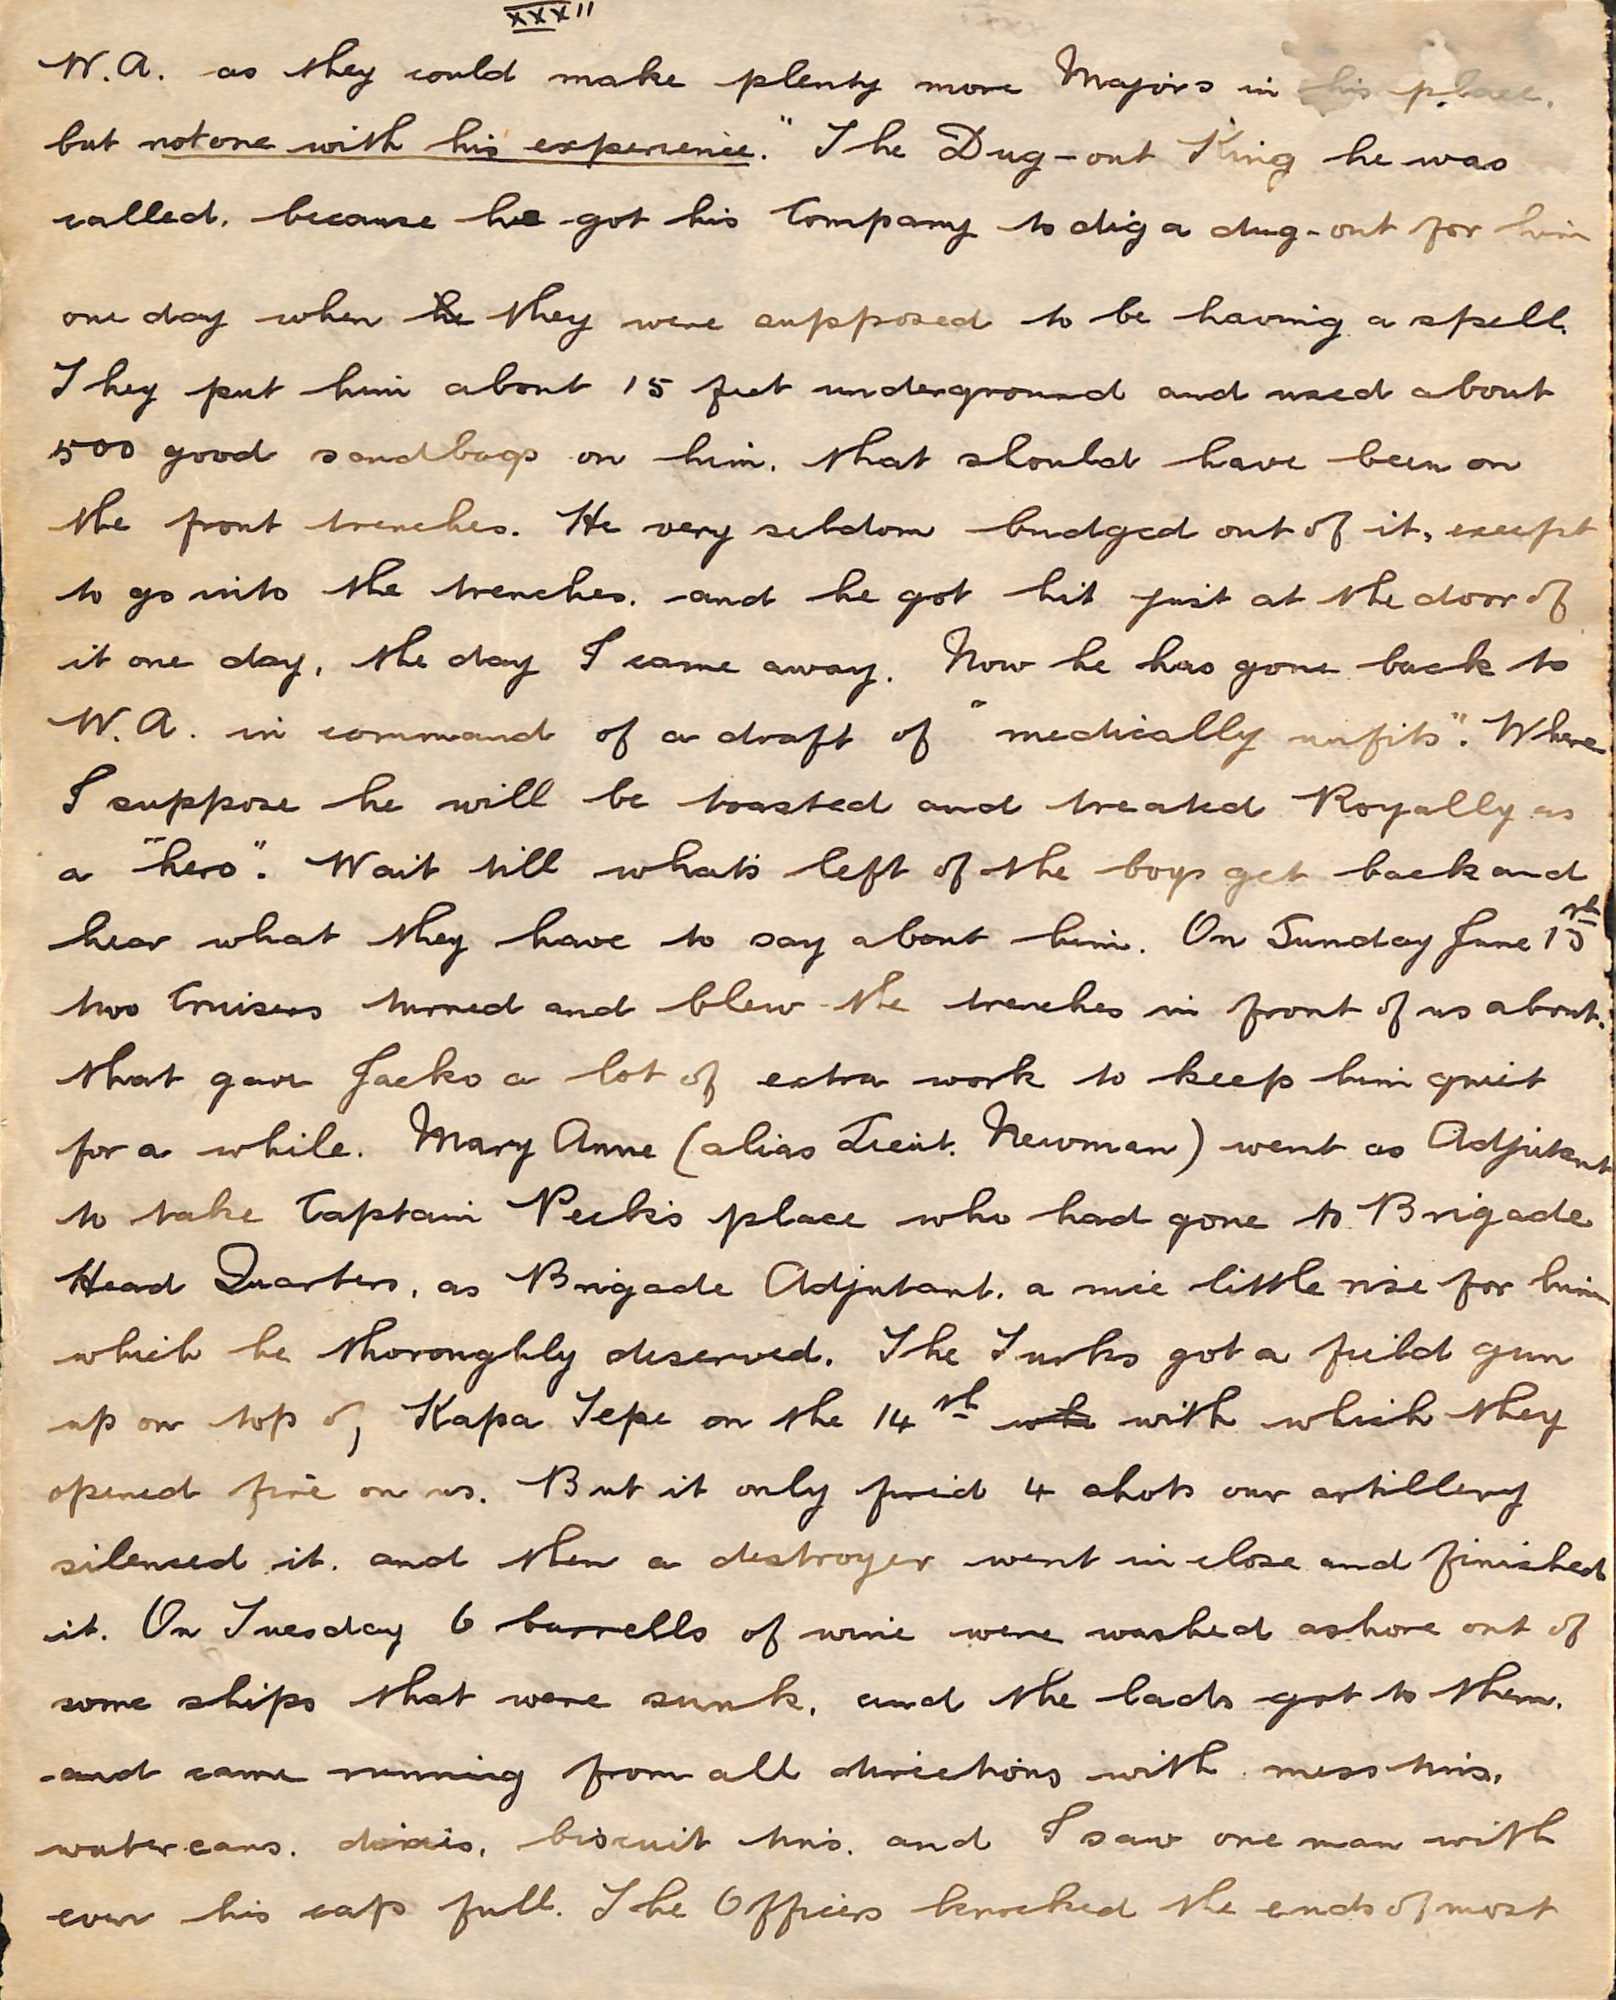 XXXII
W.A. as they could make plenty more Majors in his place.
but not one with his experience." The Dug-out King he was
called, because he got his Company to dig a dug-out for him
one day when he they were supposed to be having a spell.
They put him about 15 feet underground and used about
500 good sandbags on him, that should have been on
the front trenches. He very seldom budged out of it, except
to go into the trenches. and he got hit just at the door of
it one day, the day I came away. Now he has gone back to
W.A. in command of a draft of "medically unfits". Where
I suppose he will be toasted and treated Royally as
a "hero". Wait till what's left of the boys get back and
hear what they have to say about him. On Sunday June 13th
two Cruisers turned and blew the trenches in front of us about.
that gave Jacko a lot of extra work to keep him quiet
for a while. Mary Anne (alias Lieut. Newman) went as Adjutant
to take Captain Peck's place who had gone to Brigade
Head Quarters, as Brigade Adjutant. a nice little rise for him
which he thoroughly deserved. The Turks got a field gun
up on top of Kapa Tepe on the 14th wh with which they
opened fire on us. But it only fired 4 shots our artillery
silenced it. and then a destroyer went in close and finished
it. On Tuesday 6 barrells of wine were washed ashore out of
some ships that were sunk, and the lads got to them.
and came running from all directions with mess tins,
water cans. dixies, biscuit tins. and I saw one man with
even his cap full. The Officers knocked the ends of most